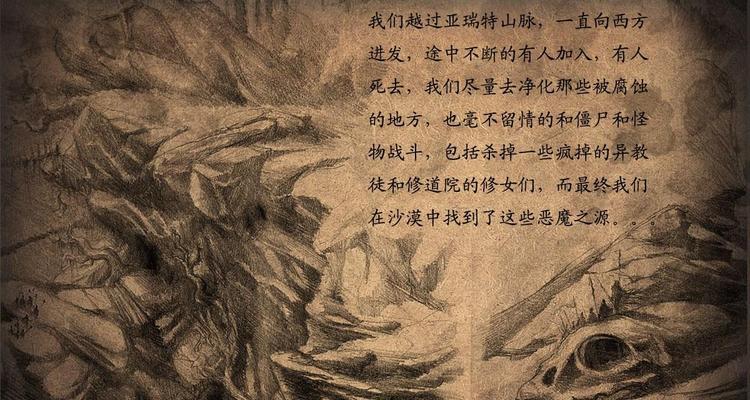 我们越过亚瑞特山脉，一直向西方
进发，途中不断的有人加入，有人
死去，我们尽量去净化那些被腐蚀
的地方，也毫不留情的和僵尸和怪
物战斗，包括杀掉一些疯掉的异教
徒和修道院的修女们，而最终我们
在沙漠中找到了这些恶魔之源。。。